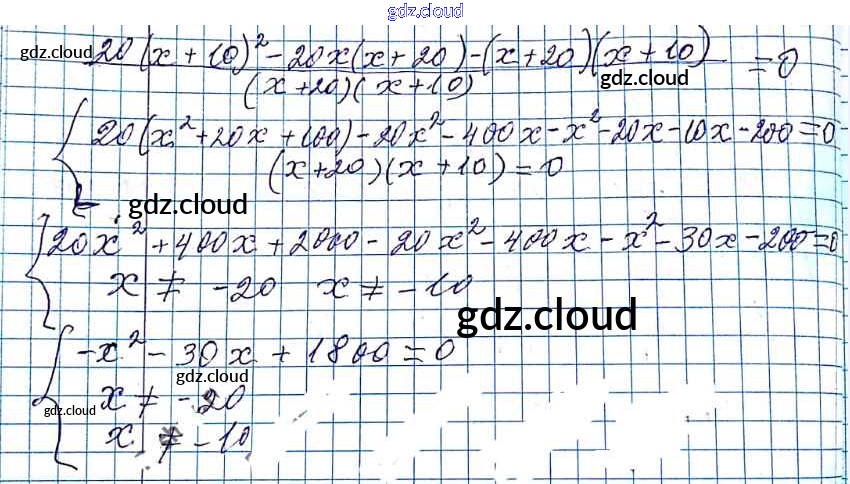 gdz.cloud
gdz.cloud 20(x+10)² - 20x(x+20) - (x+20)(x+10)
(x+20)(x+10) = 0
gdz.cloud
20(x²+20x+100) - 20x² - 400x - x² - 20x - 10x - 200 = 0
(x+20)(x+10) = 0
gdz.cloud
20x² + 400x + 2000 - 20x² - 400x - x² - 30x - 200 = 0
x ≠ -20 x ≠ -10
gdz.cloud
-x² - 30x + 1800 = 0
gdz.cloud
x ≠ -20
gdz.cloud
x ≠ -10